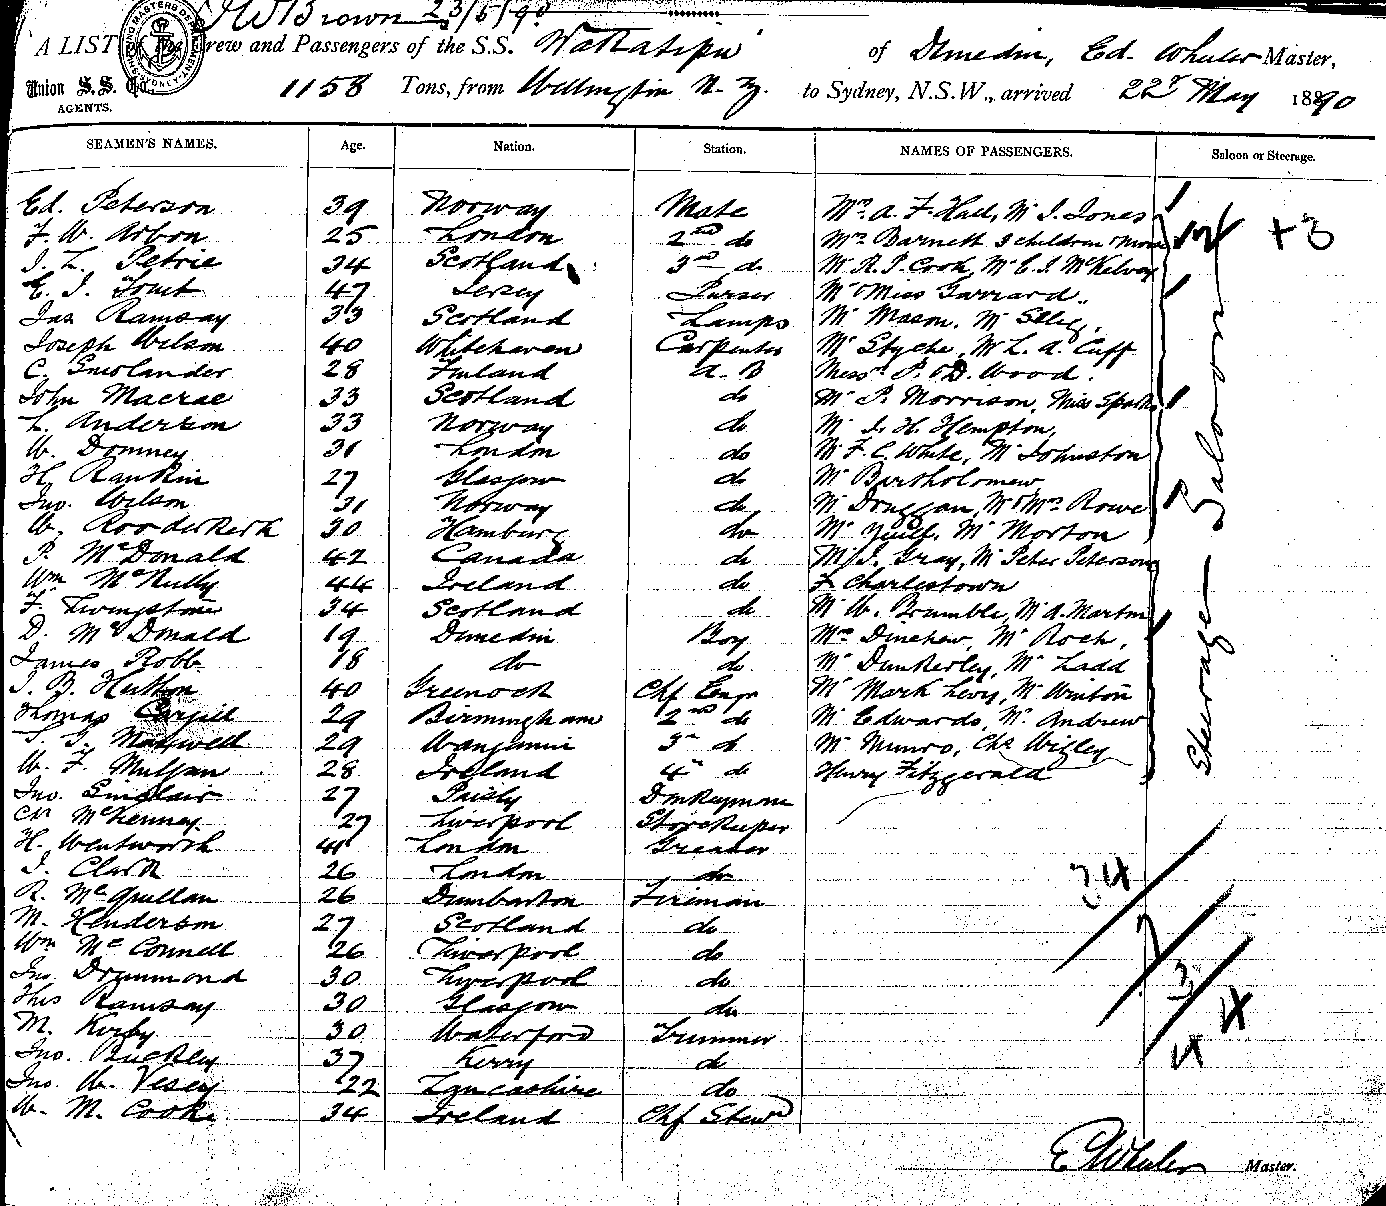 J W Brown 23/5/90
A LIST of the Crew and Passengers of the S.S. "Wakatipu" of Dunedin, Ed. Wheeler Master,
Union S. S. Co. AGENTS. 1158 Tons, from Wellington N. Z. to Sydney, N.S.W., arrived 22d May 1890
SEAMEN'S NAMES. Age. Nation. Station. NAMES OF PASSENGERS. Saloon or Steerage.
Ed. Peterson 39 Norway Mate Mr. A. F. Hall, Mr J. Jones
F. W. Arbon 25 London 2nd do Mrs Barnett 3 children &
J. L. Petrie 34 Scotland 3rd do Mr R. P. Cook, Mr C. J. McKelvey
E. J. 47 Jersey Purser Mr & Miss Garrard
Jas Ramsay 33 Scotland Lamps Mr Mason, Mr
Joseph Wilson 40 Whitehaven Carpenter Mr Styche, Mr L. A. Cuff
C. 28 Finland A. B Messrs P. & D. Wood.
John Macrae 33 Scotland do Mr P. Morrison, Miss Sparks
L. Anderson 33 Norway do Mr J. H. Hempton,
W. Domney 31 London do Mr F. C. White, Mr Johnston
H. Rankin 27 Glasgow do Mr Bartholomew
Jno. Wilson 31 Norway do Mr Druggan, Mr & Mrs Rowe
W. Roorderkerk 30 Hamburg do Mr Mr Morton
P. McDonald 42 Canada do Mr J. Gray, Mr Peter Peterson
Wm McNully 44 Ireland do F Charlestown
F. Livingstone 34 Scotland do Mr W. Brumble, Mr A. Marton
D. McDonald 19 Dunedin Boy Mr Roch,
James Robb 18 do do Mr Dunkerley, Mr Ladd
J. B. Hutton 40 Greenock Chf Engr Mr Mark Levy, Mr Winton
Thomas Cargill 29 Birmingham 2nd do Mr Edwards, Mr Andrew
Maxwell 29 Wanganui 3rd do Mr Munro, Chs Wigley
W. F. 28 Ireland 4th do Henry Fitzgerald
Jno. Sinclair 27 Paisly Donkeyman
27 Liverpool Storekeeper
H. Wentworth 41 London Greaser
J. Clark 26 London do
R. McQuillan 26 Dumbarton Fireman
M. Henderson 27 Scotland do
Wm McConnell 26 Liverpool do
Jno. Drummond 30 Liverpool do
Thos Ramsay 30 Glasgow do
M. Kirby 30 Waterford Trimmer
Jno. Buckley 37 Kerry do
Jno. W. Vesey 22 Lancashire do
W. M. Cooke 34 Ireland Chf Stewd
+3
Steerage — Saloon
34
7
3
44
E Wheeler Master.